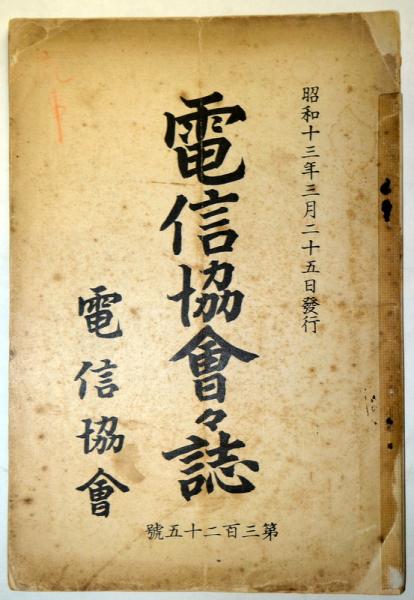 昭和十三年三月二十五日發行
電信協會々誌
電信協會
第三百二十五號